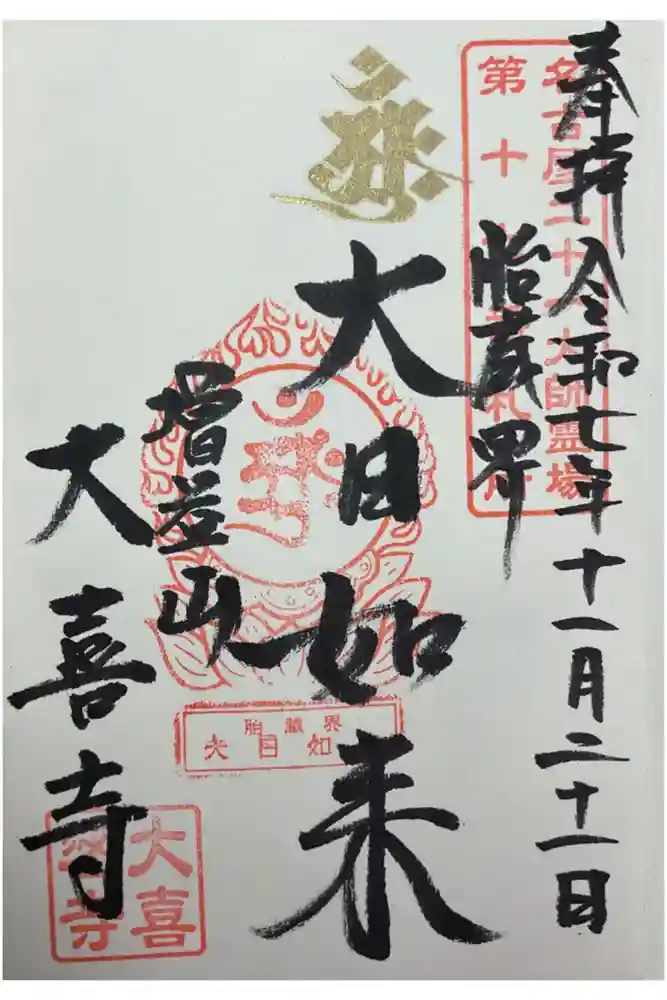 奉拝 令和七年十一月二十一日
名古屋二十一大師霊場
第十
胎蔵界
大日如来
胎蔵界
大日如
増益山
大喜寺
大喜
寺